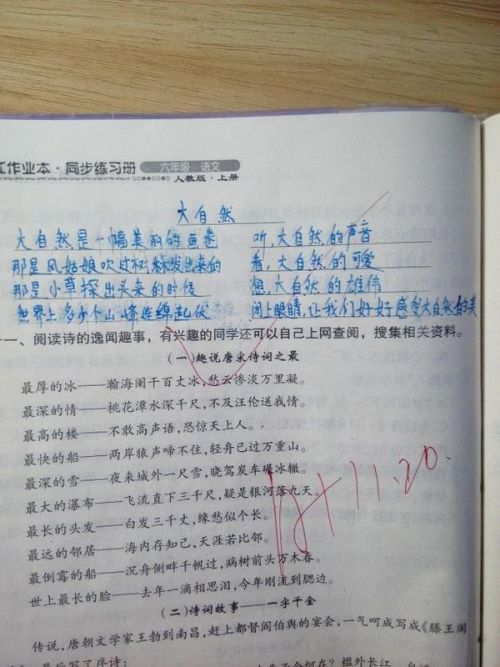 工作业本·同步练习册 六年级 语文
人教版·上册
大自然
大自然是一幅美丽的画卷
那是风姑娘吹过树林发出来的
那是小草探出头来的时候
世界上多少个山峰连绵起伏
听,大自然的声音
看,大自然的可爱
想,大自然的雄伟
闭上眼睛,让我们好好感受大自然的美
一、阅读诗的逸闻趣事,有兴趣的同学还可以自己上网查阅,搜集相关资料。
(一)趣说唐宋诗词之最
最厚的冰——瀚海阑干百丈冰,愁云惨淡万里凝。
最深的情——桃花潭水深千尺,不及汪伦送我情。
最高的楼——不敢高声语,恐惊天上人。
最快的船——两岸猿声啼不住,轻舟已过万重山。
最深的雪——夜来城外一尺雪,晓驾炭车碾冰辙。
最大的瀑布——飞流直下三千尺,疑是银河落九天。
最长的头发——白发三千丈,缘愁似个长。
最远的邻居——海内存知己,天涯若比邻。
最倒霉的船——沉舟侧畔千帆过,病树前头万木春。
世上最长的脸——去年一滴相思泪,今年刚流到腮边。
11.20.
(二)诗词故事——一字千金
传说,唐朝文学家王勃到南昌,赶上都督阎伯舆的宴会,一气呵成写成《滕王阁